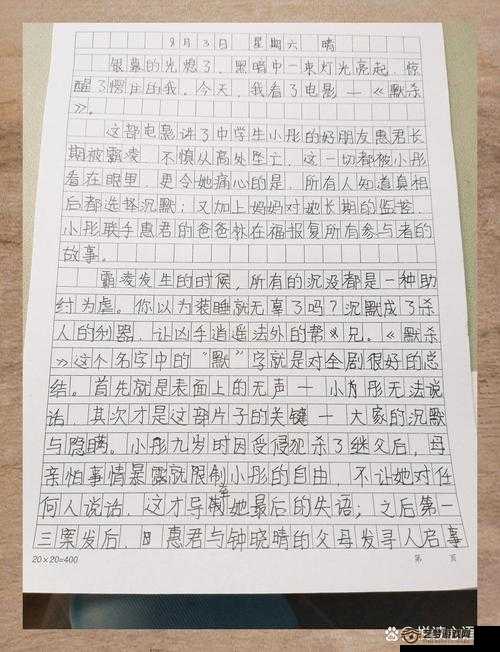 8月3日 星期六 晴
银幕的光熄了，黑暗中一束灯光亮起，惊
醒了愣住的我，今天，我看了电影－《默杀
》。
这部电影讲了中学生小彤的好朋友惠君长
期被霸凌，不慎从高处坠亡，这一切都被小彤
看在眼里，更令她痛心的是，所有人知道真相
后都选择沉默；又加上妈妈对她长期的监控，
小彤联手惠君的爸爸林在福报复所有参与者的
故事。
霸凌发生的时候，所有的沉没都是一种助
纣为虐。你以为装睡就无辜了吗？沉默成了杀
人的利器，让凶手逍遥法外的帮兄。《默杀
》这个名字中的“默”字就是对全剧很好的总
结。首先就是表面上的无声－小彤无法说
话，其次才是这部片子的关键－大家的沉默
与隐瞒。小彤九岁时因受侵犯杀了继父后，母
亲怕事情暴露就限制小彤的自由，不让她对任
何人说话，这才导致她最后的失语；之后第一
三案发后，惠君与钟晓晴的父母发寻人启事
20×20=400 第 页
艺梦游戏网